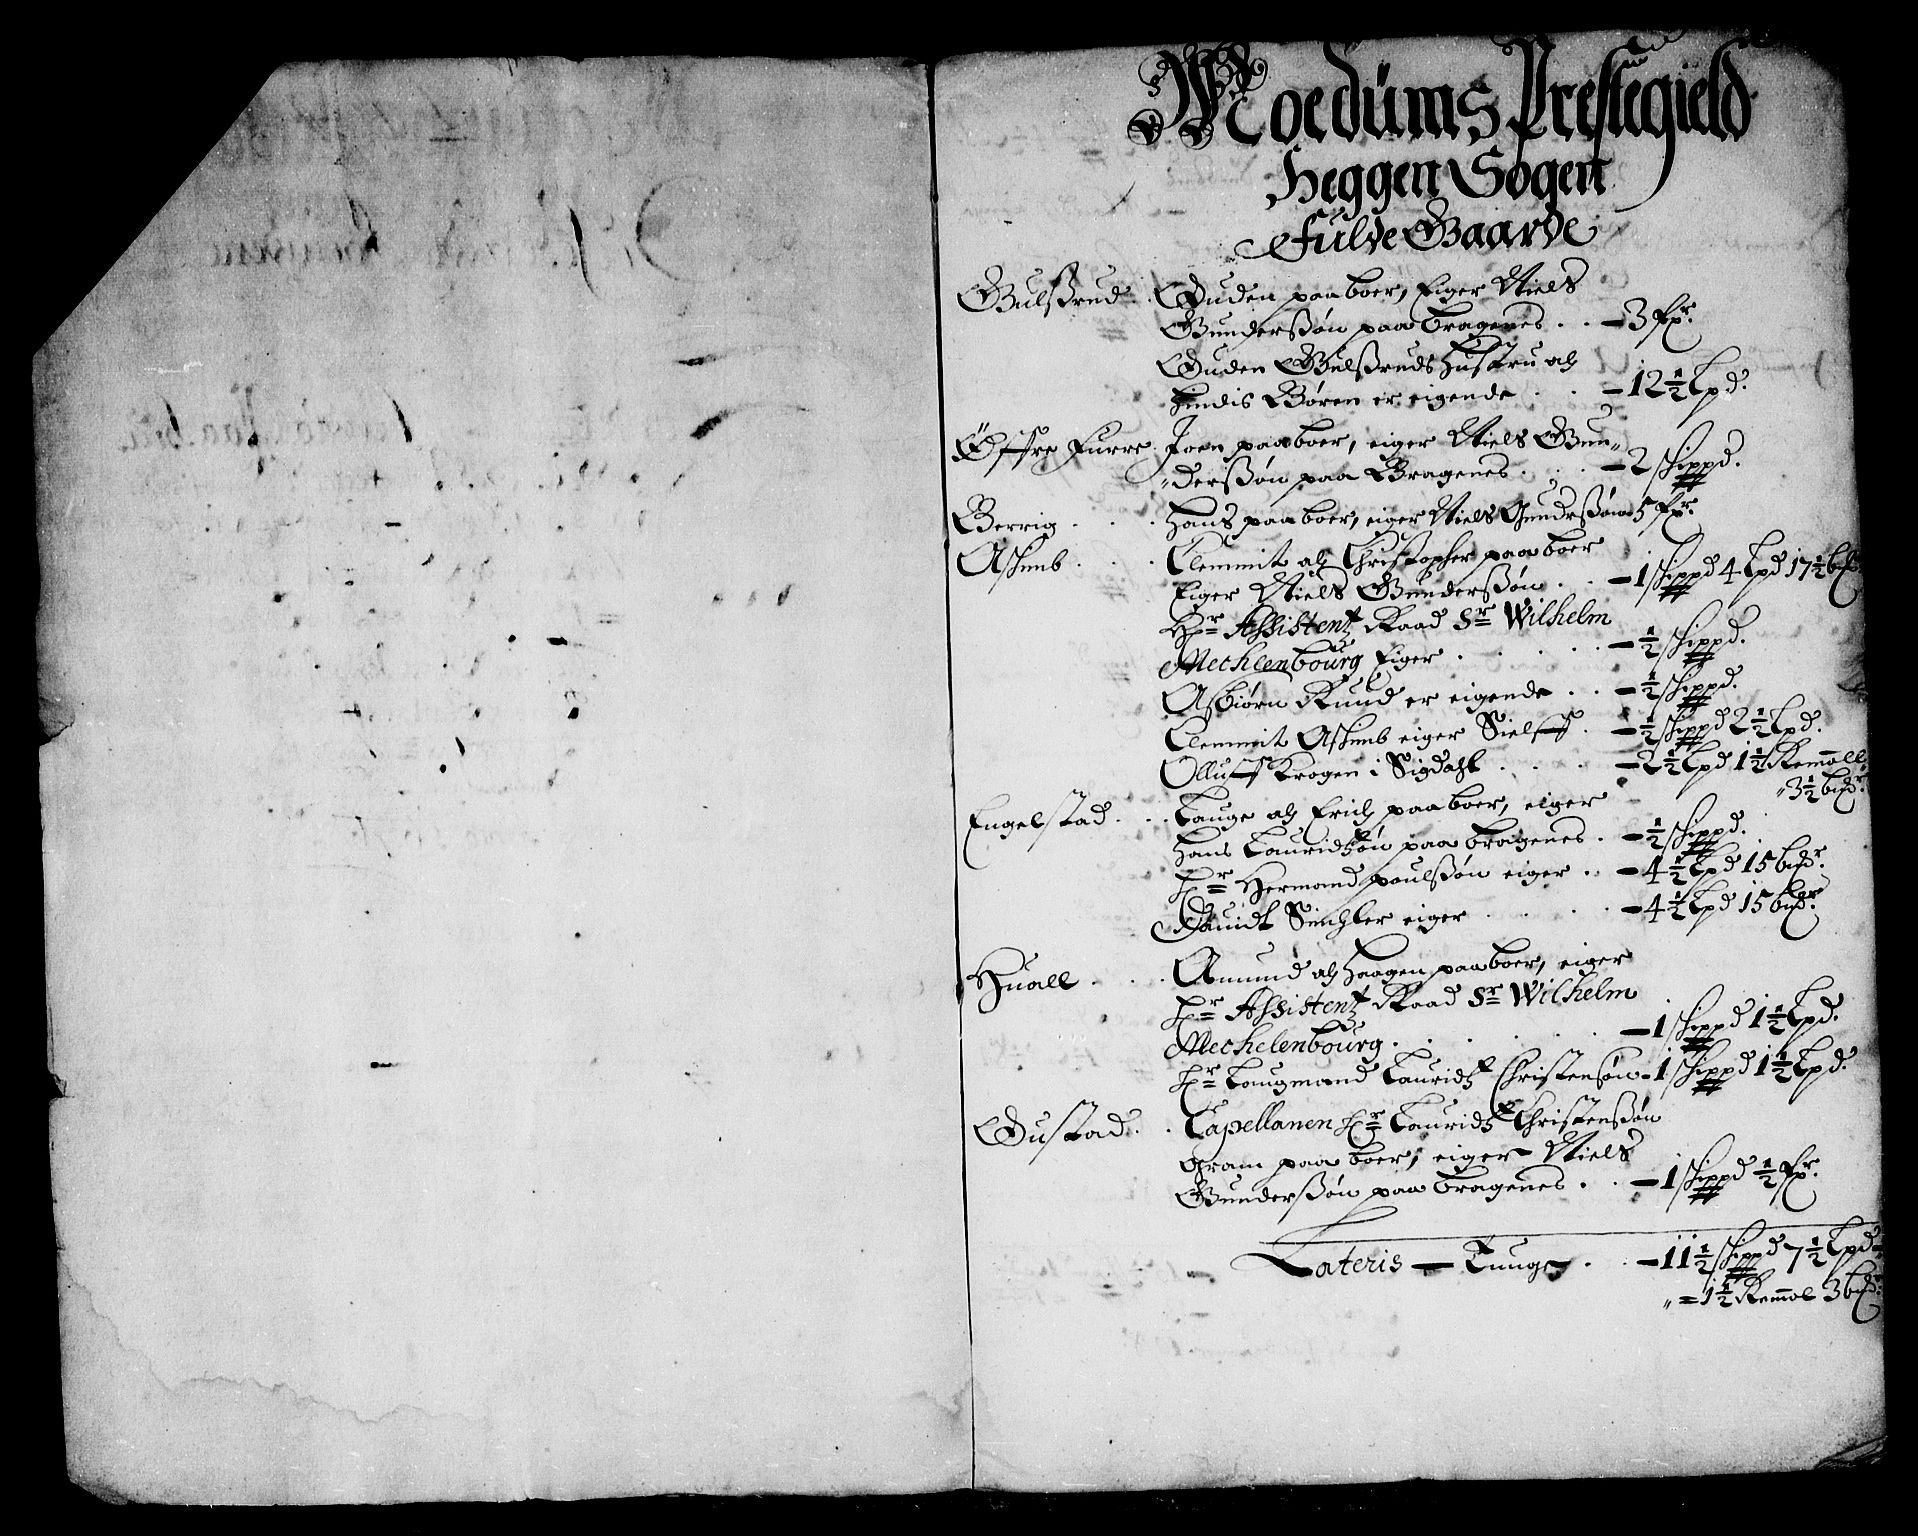 Moedums Prestegield
Heggen Sogen
Fulde Gaarde
Gulßrud . Guden paa boer, Eiger Niels
Gunderßøn paa Bragenes . . - 3 fxr.
Guden Gulßruds Hustru och
hindis Børen er eigende . . - 12½ Lpd.
Øffre Furre Joen paaboer, eiger Niels Gun„
„derßøn paa Bragenes . . . - 2 shippd.
Berrig . . . Hans paa boer, eiger Niels Gundrßøn - 5 fxr.
Askimb . . . Clemmit och Christopher paa boer
Eiger Niels Gunderßøn . . - 1 shippd 4 Lpd 17½ bß.
Hr Assistentz Raad Sr Wilhelm
Mechlenbourg Eiger . . . . . - ½ shippd.
Asbiørn Ruud er eigende . . - ½ shippd.
Clemmit Askimb eiger Sielff . - ½ shippd 2½ Lpd.
Olluff Krogen i Sigdahl . . . . - 2½ Lpd 1½ Remoll
„ 3½ bßr.
Engelstad . . . Lauge och Erich paa boer, eiger
Hans Lauridtzøn paa Bragenes . - ½ shippd.
Hr Hermand poulßøn eiger . . - 4½ Lpd 15 bßr.
Dauidt Sinchler eiger . . . . - 4½ Lpd 15 bßr.
Huall . . . Amund och Haagen paa boer, eiger
Hr Assistentz Raad Sr Wilhelm
Mechelenbourg . . . . . . - 1 shippd 1½ Lpd.
Hr Laugmand Lauridtz Christensøn - 1 shippd 1½ Lpd.
Gustad . . Capellanen Hr Lauridtz Christenßøn
Gram paa boer, eiger Niels
Gunderßøn paa Bragenes . . - 1 shippd ½ fxr.
Lateris - Tunge . . - 11½ shippd 7½ Lpd
„ = 1½ Remol 3 bßr.